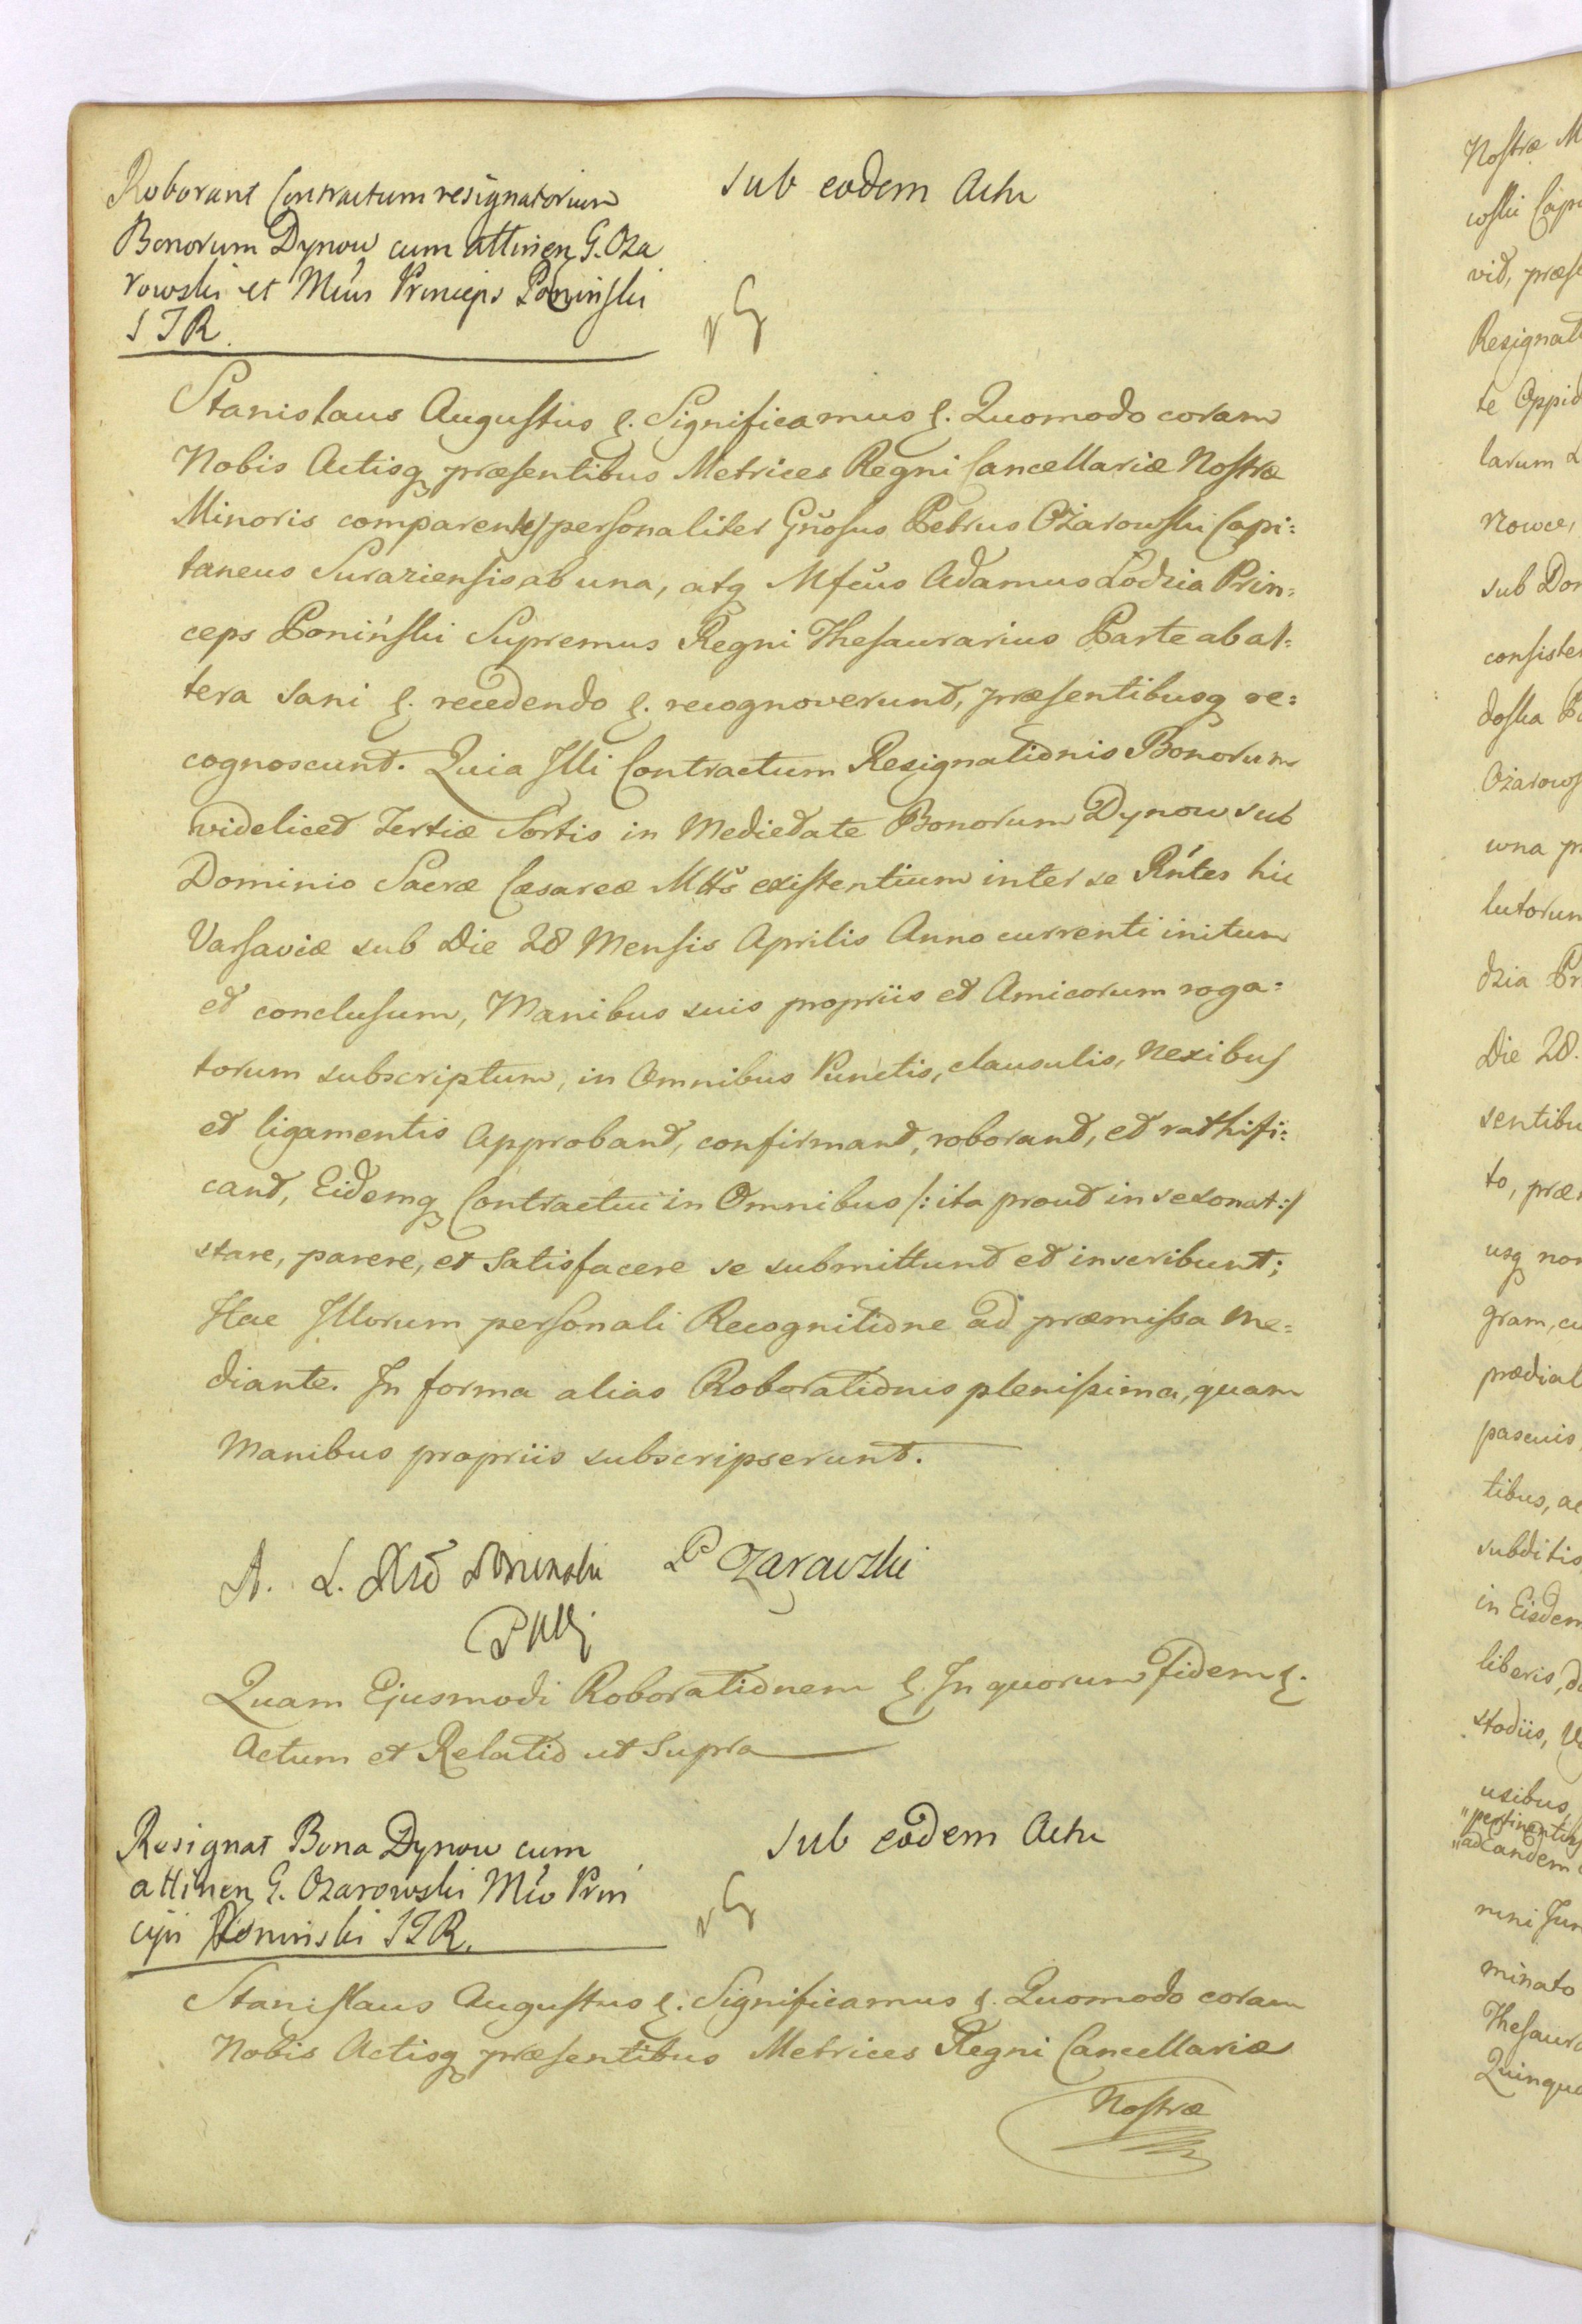 Roborant Contractum resignatorium
Bonorum Dynow cum attinen G. Oza
rowski et Mcus Princeps Poninski
S T R.
sub eodem Actu
Stanislaus Augustus &. Significamus &. Quomodo coram
Nobis Actisq præsentibus Metrices Regni Cancellariæ Nostræ
Minoris comparentes personaliter Gnosus Petrus Ożarowski Capi:
taneus Suraziensis ab una, atq Mfcus Adamus Lodzia Prin:
ceps Poniński Supremus Regni Thesaurarius Parte ab al:
tera sani &. recedendo &. recognoverunt, præsentibusq re:
cognoscunt. Quia Illi Contractum Resignationis Bonorum
videlicet Tertiæ Sortis in Medietate Bonorum Dynow sub
Dominio Sacræ Cæsareæ Mttis existentium inter se Rntes hic
Varsaviæ sub Die 28 Mensis Aprilis Anno currenti initum
et conclusum, Manibus suis propriis et Amicorum roga:
torum subscriptum, in Omnibus Punctis, clausulis, Nexibus
et ligamentis Approband, confirmand, roborand, et rathifi:
cand, Eidemq Contractui in Omnibus /: ita prout in se sonat :/
stare, parere, et Satisfacere se submittunt et inscribunt;
Hac Illorum personali Recognitione ad præmissa Me:
diante. In forma alias Roborationis plenissima, quam
Manibus propriis subscripserunt.
A. L. Poninski P Ozarowski
Quam Ejusmodi Roborationem &. In quorum Fidem &.
Actum et Relatio ut Supra
Resignat Bona Dynow cum
attinen G. Ozarowski Mco Prin
cipi Poninski S T R.
sub eodem Actu
Stanislaus Augustus &. Significamus &. Quomodo coram
Nobis Actisq præsentibus Metrices Regni Cancellariæ
Nostræ